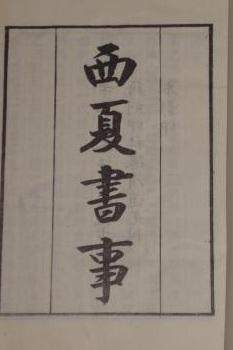 西夏書事